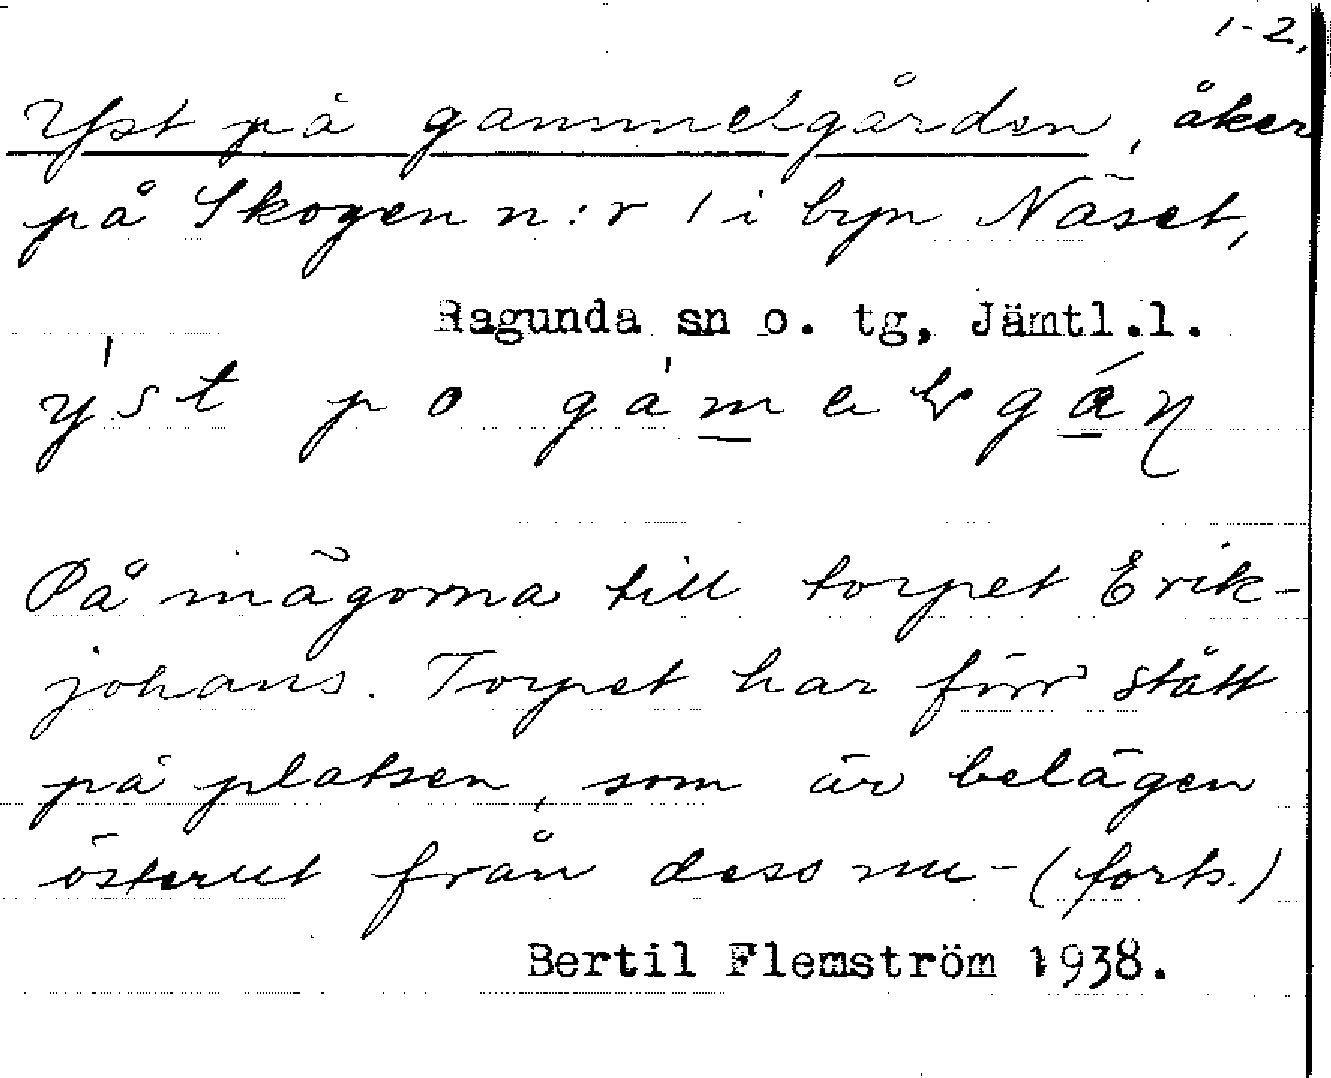 1-2.
Yst på gammelgården, åker
på Skogen n:r 1 i byn Näset,
Ragunda sn o. tg, Jämtl.l.
På inägorna till torpet Erik-
johans. Torpet har förr stått
på platsen, som är belägen
österut från dess nu- (forts.)
Bertil Flemström 1938.